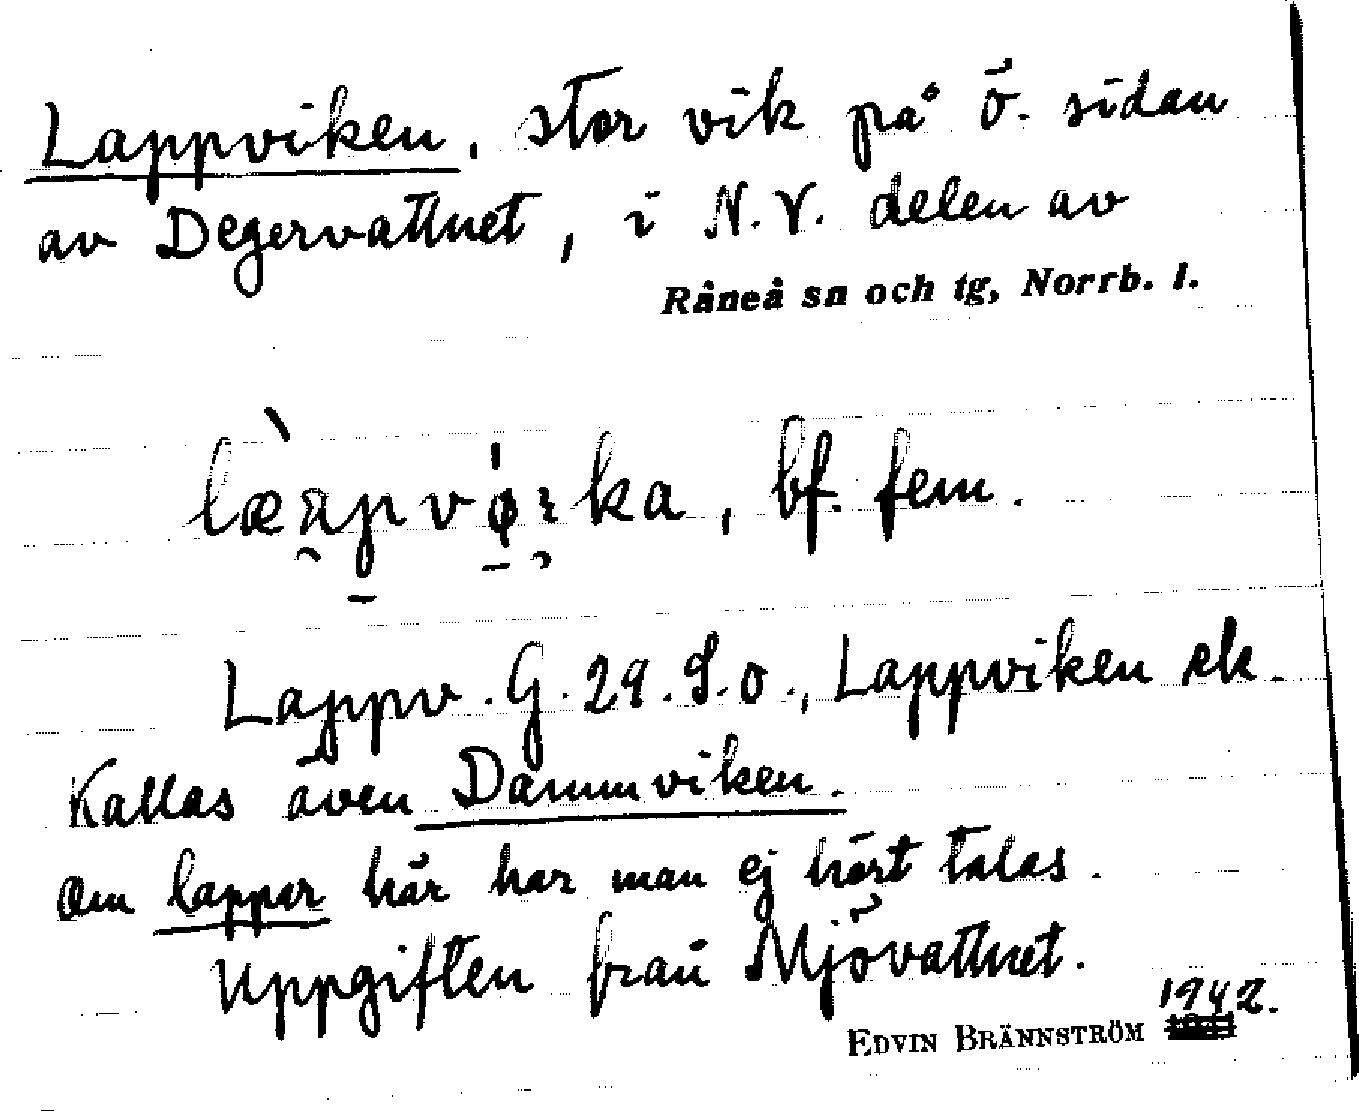 Lappviken, stor vik på ö. sidan
av Degervattnet, i N.V. delen av
Råneå sn och tg, Norrb. l.
bf. fem.
Lappv. G. 29. S.o., Lappviken ek.
Kallas även Dammviken.
Om lappar här har man ej hört talas.
Uppgiften från Mjövattnet.
EDVIN BRÄNNSTRÖM 1942.